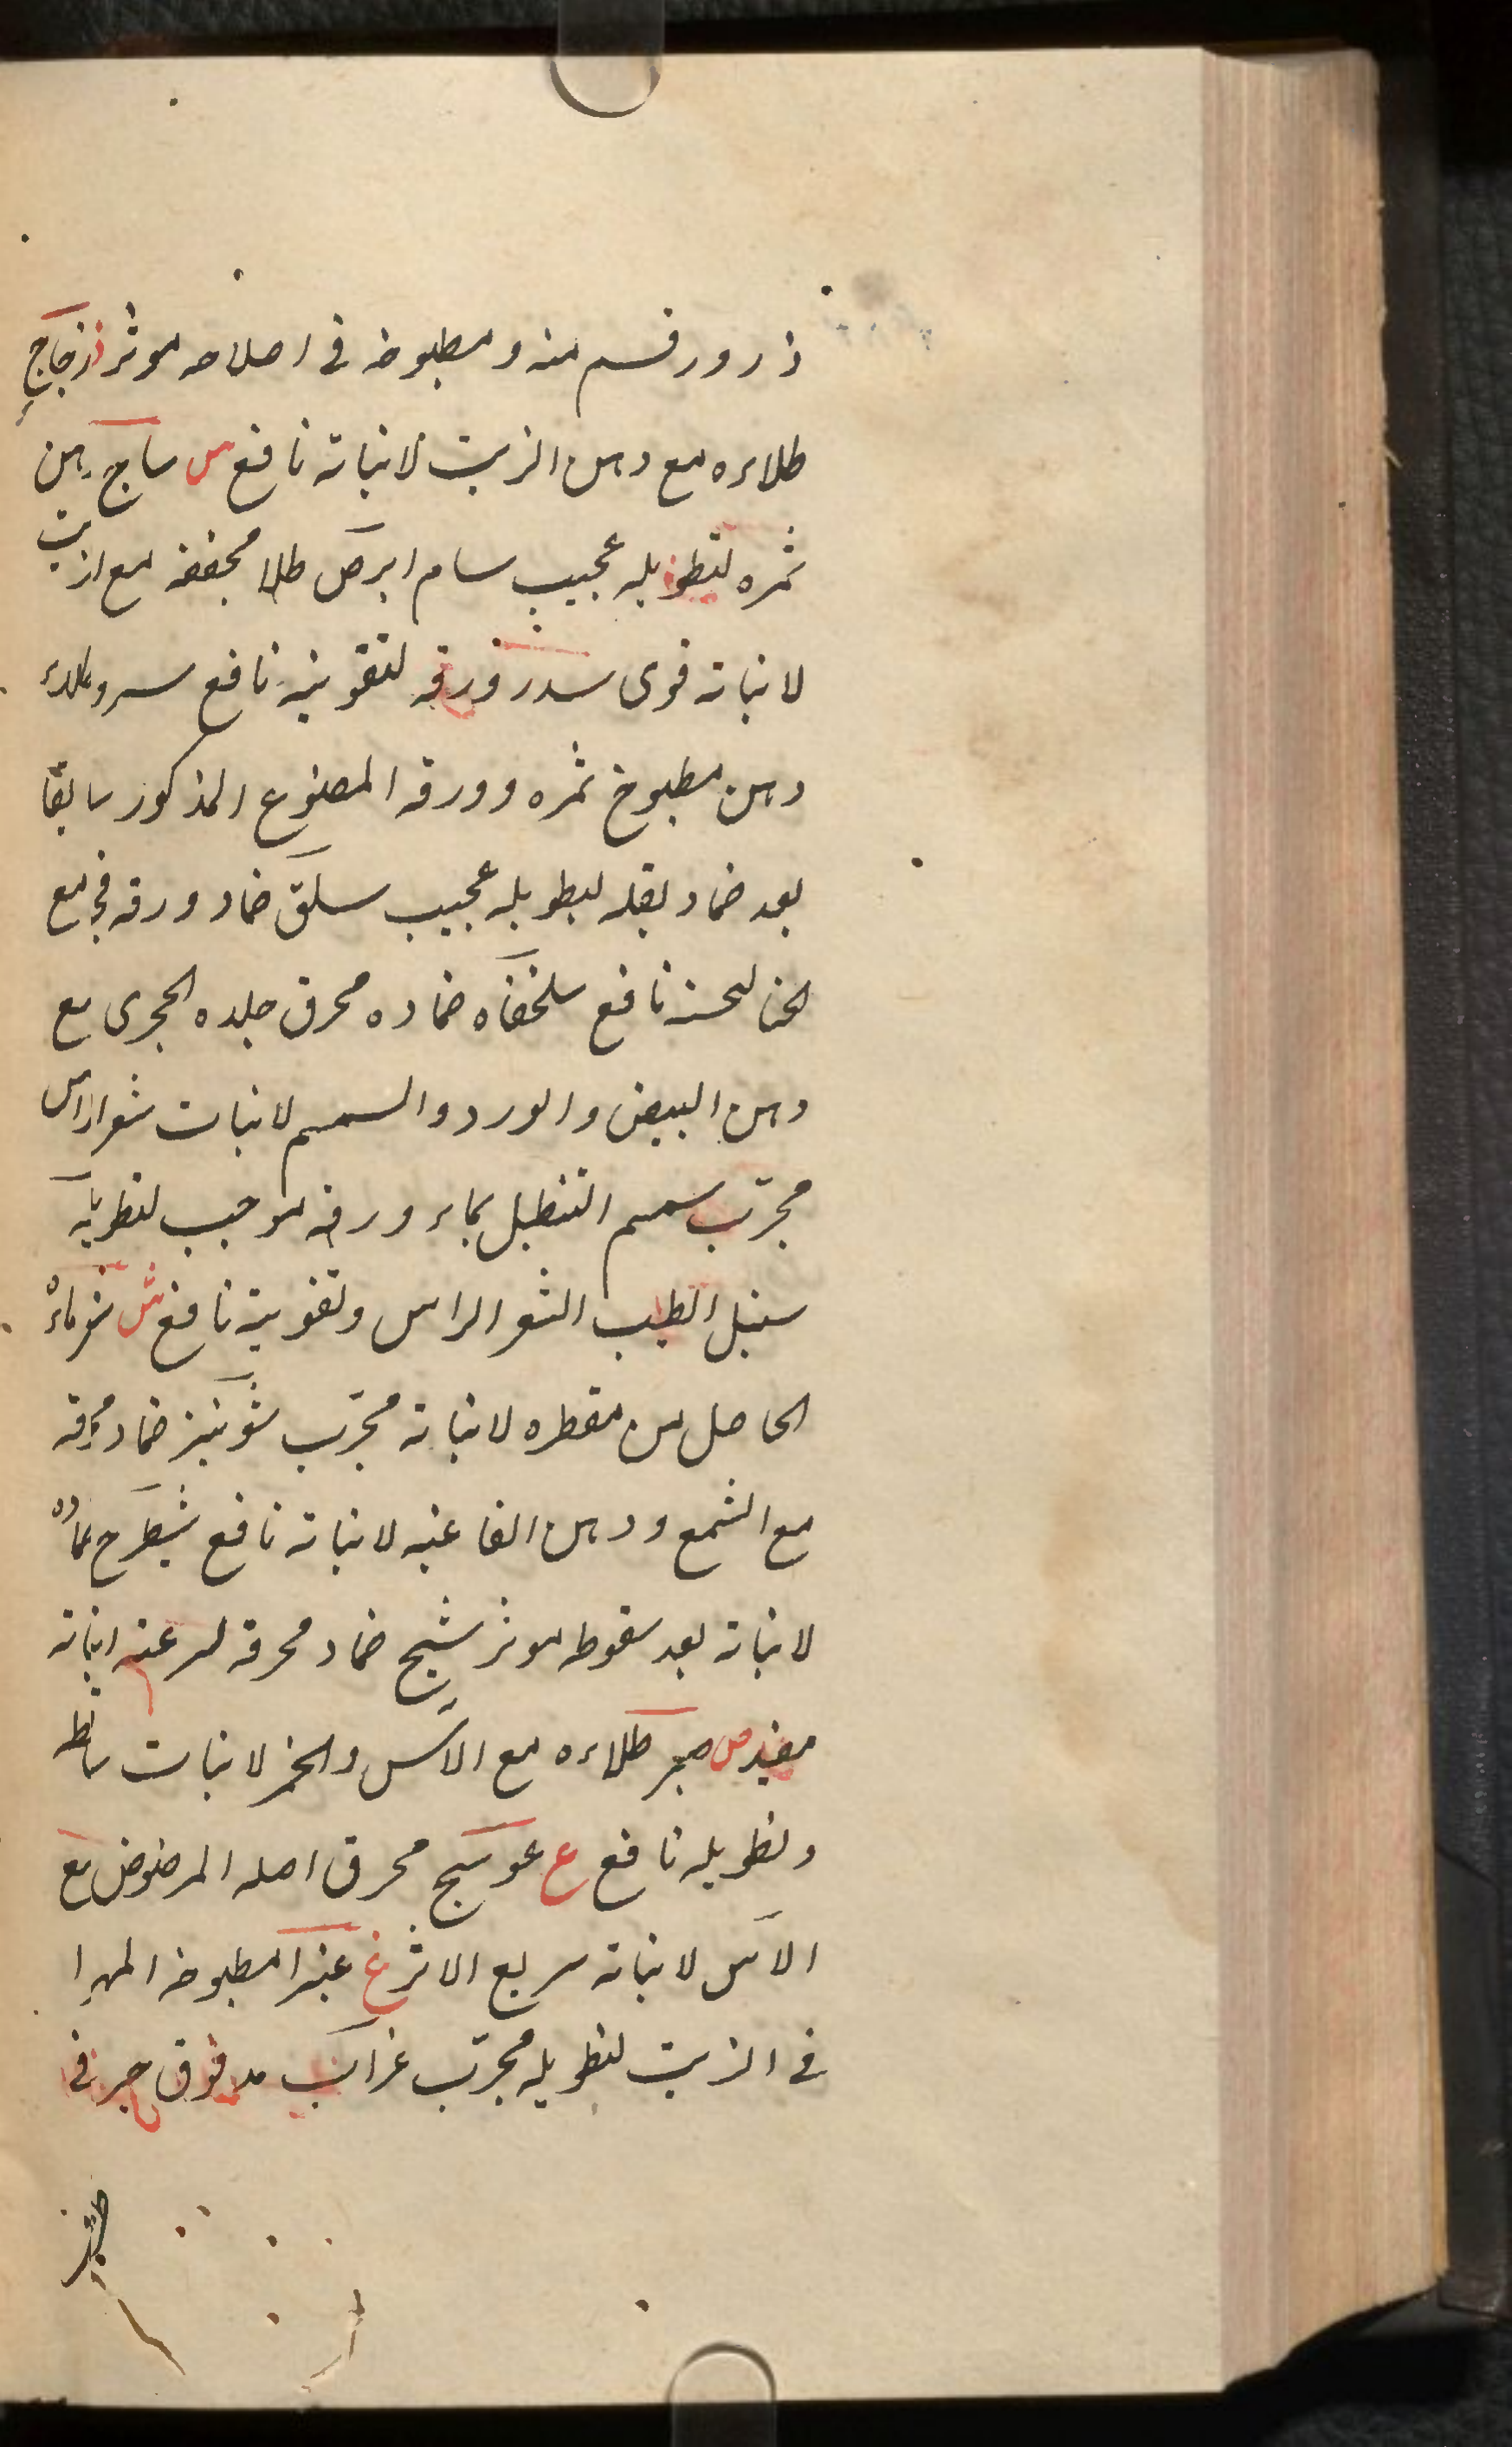 ذرور قسم منه ومطبوخه فى اصلاحه موثر ز زجاج
طلاءه مع دهن الزيت لانباته نافع س ساج دهن
ثمره لتطويله عجيب سام ابرص طلا مجففه مع الزيت
لانباته قوى سدر ورقه لتقويته نافع سرو طلاء
دهن مطبوخ ثمره وورقه المصنوع المذكور سابقا
بعد ضماد بقله لتطويله عجيب سلق ضماد ورقه فج مع
الحنا لحسنه نافع سلحفاه ضماده محرق جلده الحجرى مع
دهن البيض والورد والسمسم لانبات شعر الراس
مجرّب سمسم التنطيل بماء ورقه موجب لتطويله
سنبل الطيب الشعر الراس وتقويته نافع ش شعر ماء
الحاصل من مقطره لانباته مجرّب شونيز ضماد محرقه
مع الشمع ودهن الفاغيه لانباته نافع شيطرج ضماده
لانباته بعد سقوطه موثر شيح ضماد محرقه لسرعته انباته
مفيد ص صبر طلاءه مع الآس والخمر لانبات ساقطه
وتطويله نافع ع عوسج محرق اصله المرضوض مع
الآس لانباته سريع الاثر غ غبيرا مطبوخه المهرا
فى الزيت لتطويله مجرّب غراب مدقوق حبر فى